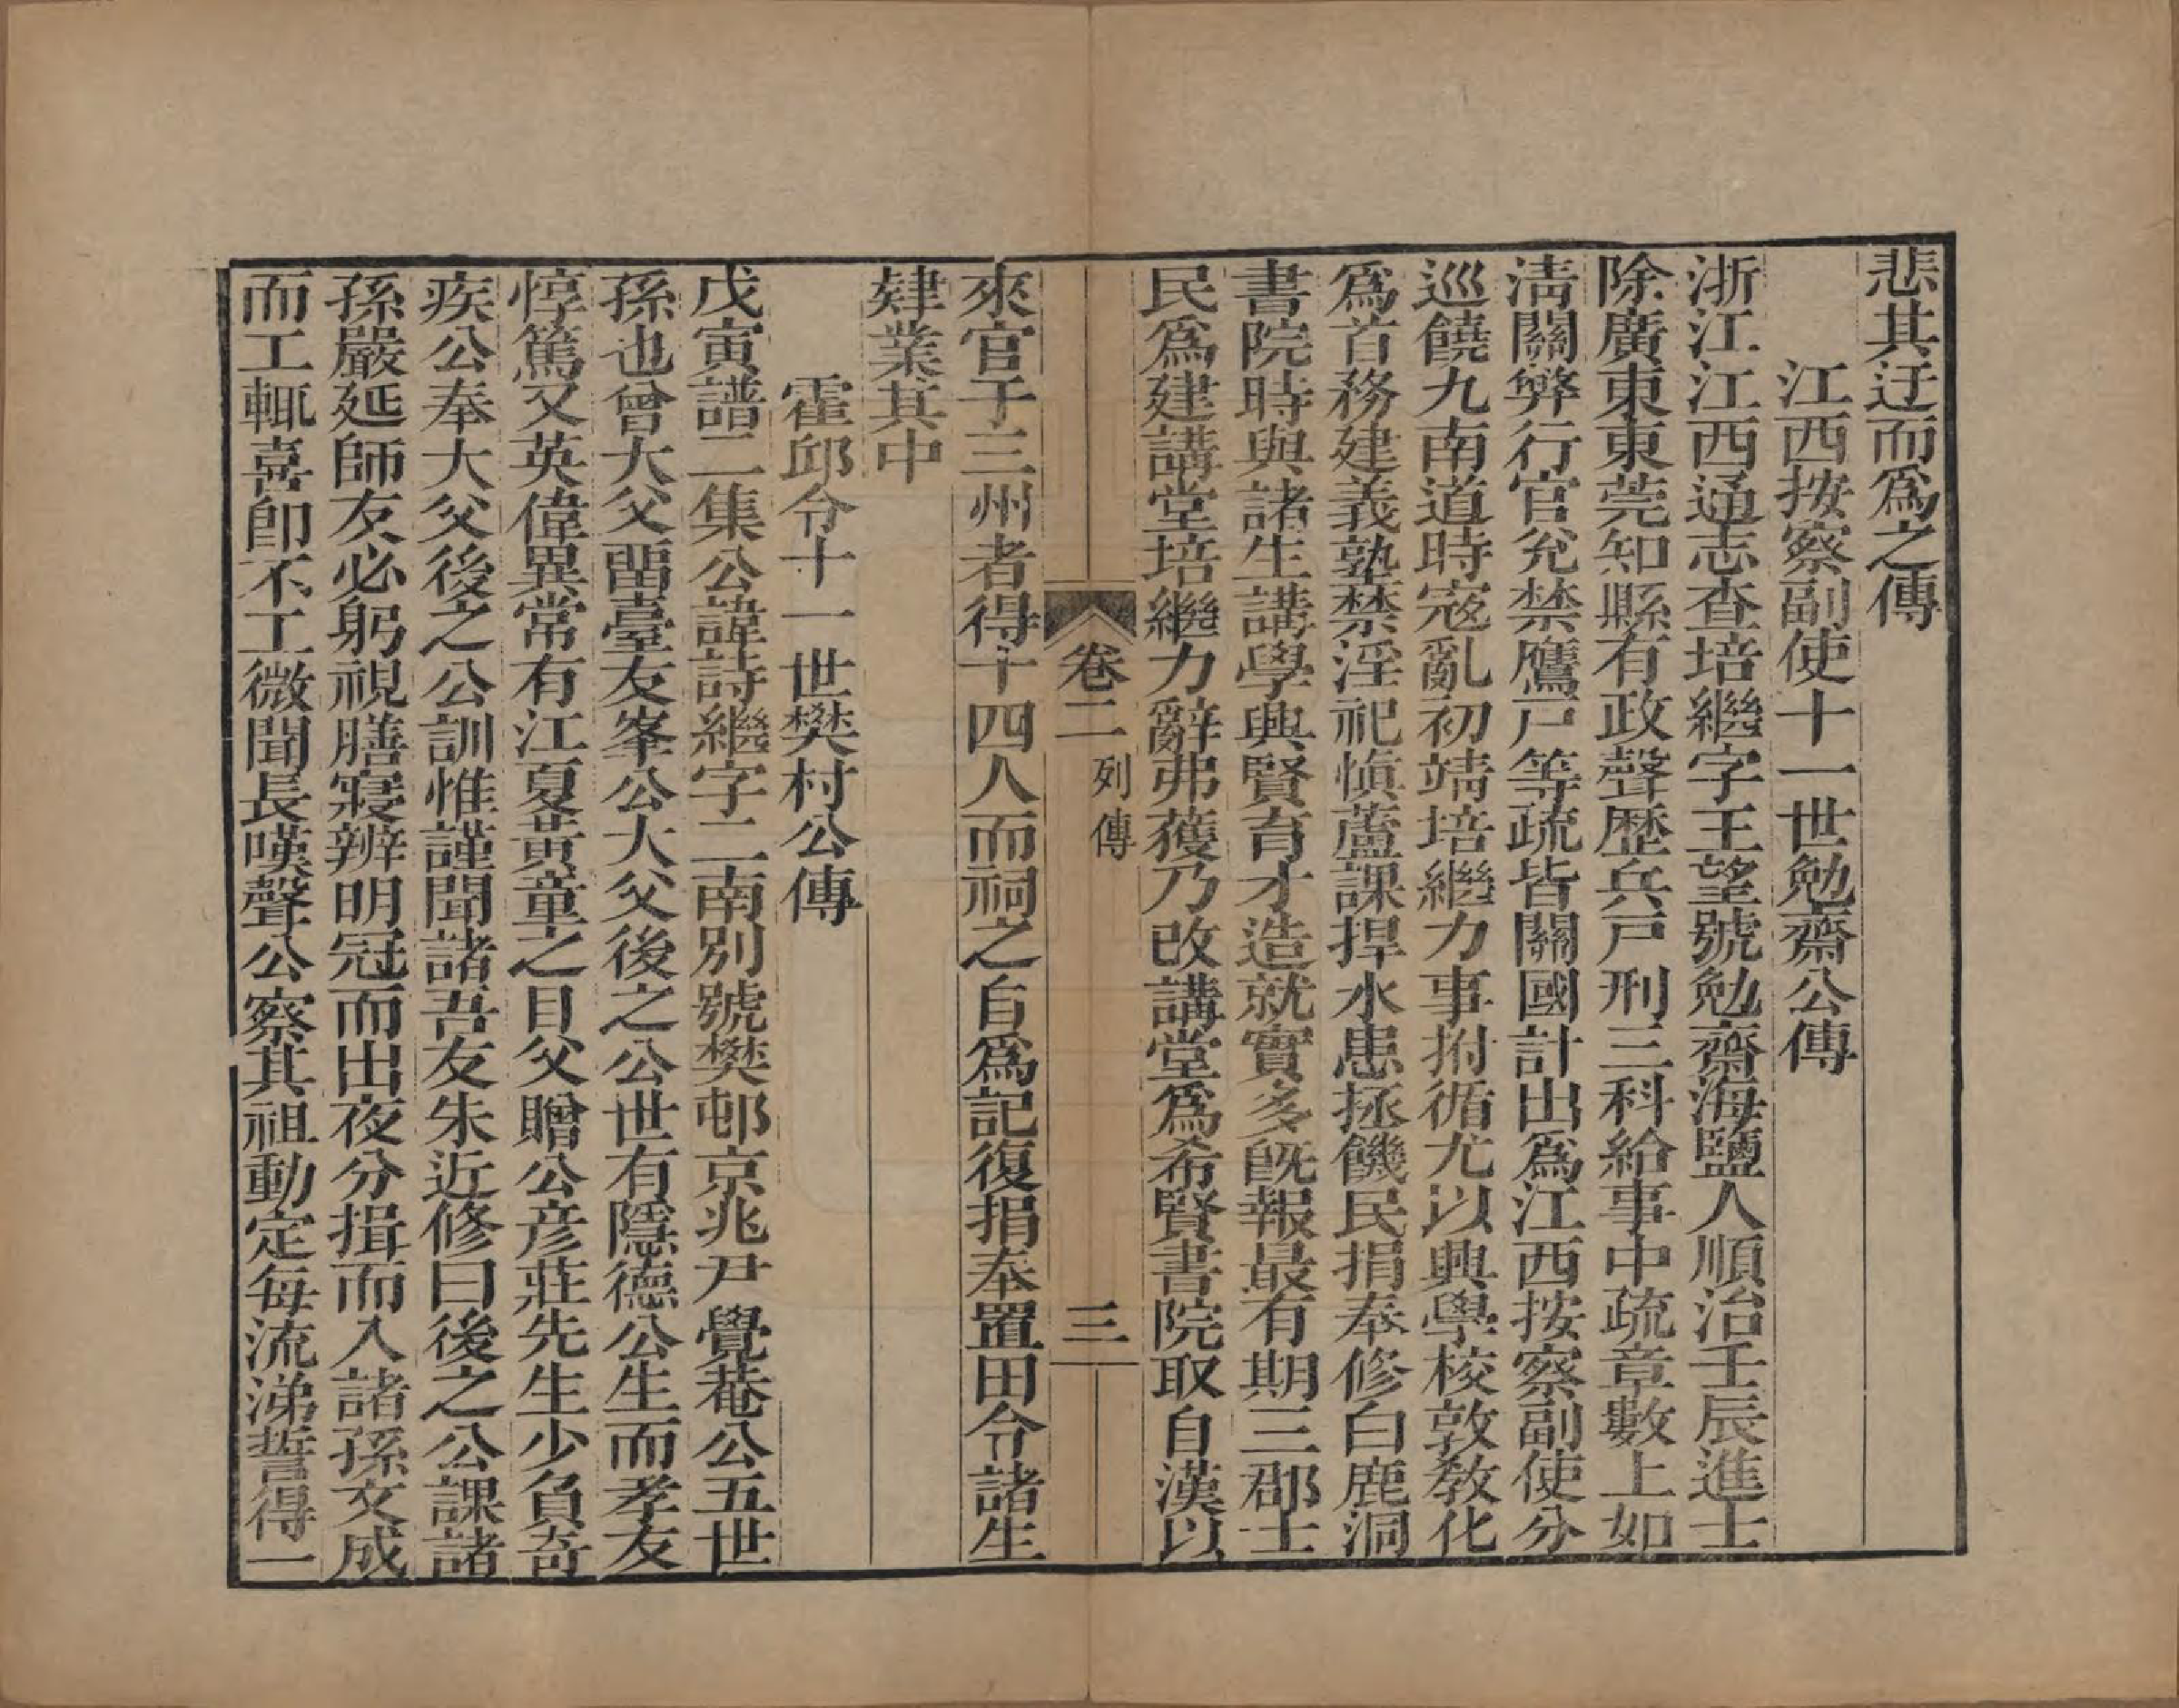 悲其迂而爲之傳
江西按察副使十一世勉齋公傳
浙江江西通志查培繼字王望號勉齋海鹽人順治壬辰進士
除廣東東莞知縣有政聲歷兵戸刑三科給事中疏章數上如
淸關弊行官兊禁鷹戸等疏皆關國計出爲江西按察副使分
巡饒九南道時寇亂初靖培繼力事拊循尤以興學校敦敎化
爲首務建義塾禁淫祀愼蘆課捍水患拯饑民捐奉修白鹿洞
書院時與諸生講學興賢育才造就實多旣報最有期三郡士
民爲建講堂培繼力辭弗獲乃改講堂爲希賢書院取自漢以
卷二 列傳 三
來官于三州者得十四人而祠之自爲記復捐奉置田令諸生
肄業其中
霍邱令十一世樊村公傳
戊寅譜二集公諱詩繼字二南別號樊邨京兆尹覺菴公五世
孫也曾大父畱臺友峯公大父後之公世有隱德公生而孝友
惇篤又英偉異常有江夏黃童之目父贈公彥莊先生少負奇
疾公奉大父後之公訓惟謹聞諸吾友朱近修曰後之公課諸
孫嚴延師友必躬視膳寢辨明冠而出夜分揖而入諸孫文成
而工輒喜卽不工微聞長嘆聲公察其祖動定每流涕誓得一